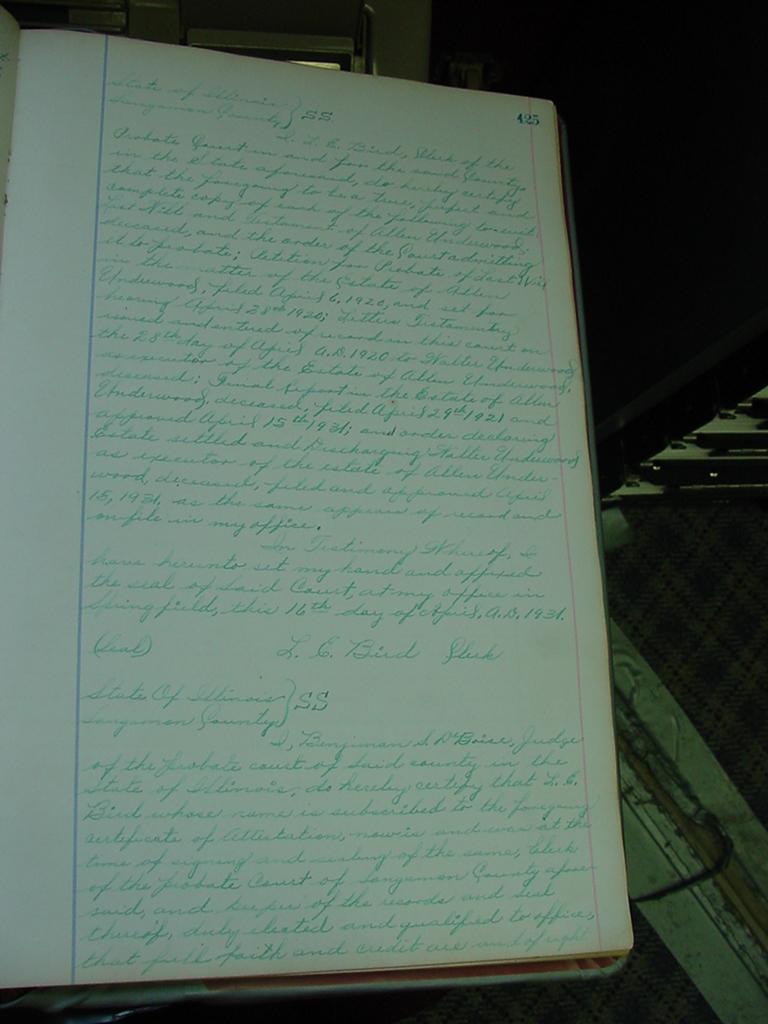 425
State of Illinois } SS
Sangamon County
I, L. E. Bird, Clerk of the
Probate Court in and for the said County
in the State aforesaid, do hereby certify
that the foregoing to be a true, perfect and
complete copy of each of the following to-wit:
Last Will and Testament of Allen Underwood,
deceased, and the order of the Court admitting
it to probate; Petition for Probate of Last Will
in the matter of the Estate of Allen
Underwood, filed April 6, 1920, and set for
hearing April 28th 1920; Letters Testamentary
issued and entered of record in this court on
the 28th day of April A.D. 1920 to Walter Underwood
as executor of the Estate of Allen Underwood,
deceased; Final Report in the Estate of Allen
Underwood, deceased, filed April 29th 1921 and
approved April 15th 1931; and order declaring
Estate settled and Discharging Walter Underwood
as executor of the estate of Allen Under-
wood, deceased, filed and approved April
15, 1931, as the same appears of record and
on file in my office.
In Testimony Whereof, I
have hereunto set my hand and affixed
the seal of said Court, at my office in
Springfield, this 16th day of April, A.D. 1931.
(Seal) L. E. Bird Clerk
State Of Illinois } SS
Sangamon County
I, Benjiman S. DeBoice, Judge
of the Probate court of said county in the
State of Illinois, do hereby certify that L. E.
Bird whose name is subscribed to the foregoing
certificate of Attestation, now is and was at the
time of signing and sealing of the same, Clerk
of the Probate Court of Sangamon County afore-
said, and keeper of the records and seal
thereof, duly elected and qualified to office,
that full faith and credit are and of right